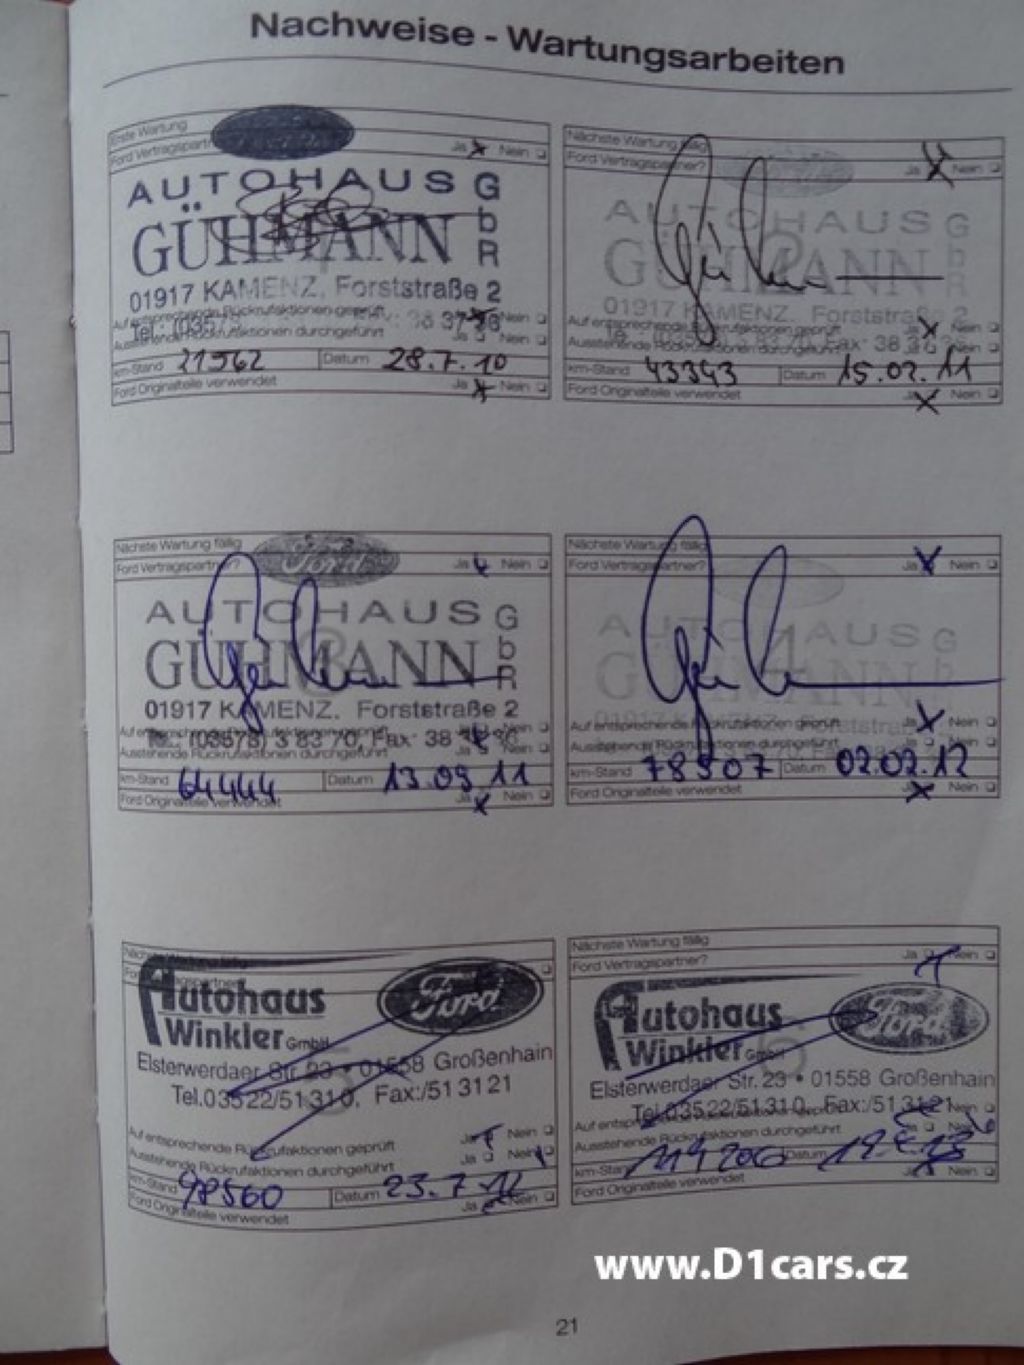 Nachweise - Wartungsarbeiten
Erste Wartung
Ford Vertragspartner Ja Nein
AUTOHAUS GbR
GÜHMANN
01917 KAMENZ, Forststraße 2
Auf entsprechende Rückrufaktionen geprüft Nein
Ausstehende Rückrufaktionen durchgeführt Ja Nein
km-Stand 21562 Datum 28.7.10
Ford Originalteile verwendet Ja Nein
Nächste Wartung fällig
Ford Vertragspartner? Ja Nein
AUTOHAUS GbR
GÜHMANN
01917 KAMENZ, Forststraße 2
Auf entsprechende Rückrufaktionen geprüft Ja Nein
Ausstehende Rückrufaktionen durchgeführt Ja Nein
km-Stand 43343 Datum 15.02.11
Ford Originalteile verwendet Ja Nein
Nächste Wartung fällig
Ford
Ford Vertragspartner? Ja Nein
AUTOHAUS GbR
GÜHMANN
01917 KAMENZ. Forststraße 2
Tel.: (03578) 3 83 70 Fax: 38
Ausstehende Rückrufaktionen durchgeführt Nein
km-Stand 64444 Datum 13.09.11
Ford Originalteile verwendet Ja Nein
Nächste Wartung fällig
Ford Vertragspartner? Ja Nein
AUTOHAUS GbR
GÜHMANN
Auf entsprechende Rückrufaktionen geprüft Ja Nein
Ausstehende Rückrufaktionen durchgeführt Nein
km-Stand 78507 Datum 02.02.12
Ford Originalteile verwendet Nein
Autohaus Ford
Winkler GmbH
Elsterwerdaer Str. 23 • 01558 Großenhain
Tel.03522/51310, Fax:/513121
Auf entsprechende Rückrufaktionen geprüft Ja Nein
Ausstehende Rückrufaktionen durchgeführt Ja Nein
km-Stand 98560 Datum 23.7.12
Ford Originalteile verwendet Ja Nein
Nächste Wartung fällig
Ford Vertragspartner? Ja Nein
Autohaus Ford
Winkler GmbH
Elsterwerdaer Str. 23 • 01558 Großenhain
Tel.03522/51310, Fax:/513121 Nein
Ausstehende Rückrufaktionen durchgeführt Ja Nein
km-Stand Datum
Ford Originalteile verwendet Nein
www.D1cars.cz
21